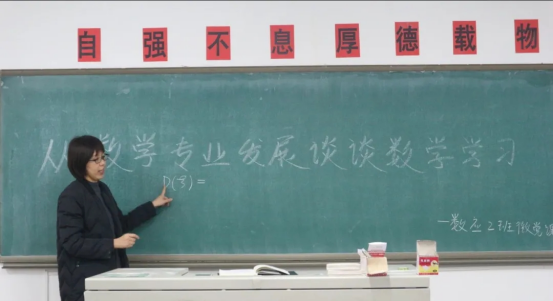 自强不息厚德载物
从数学专业发展谈谈数学学习
P(3)=
一数应2班微党课